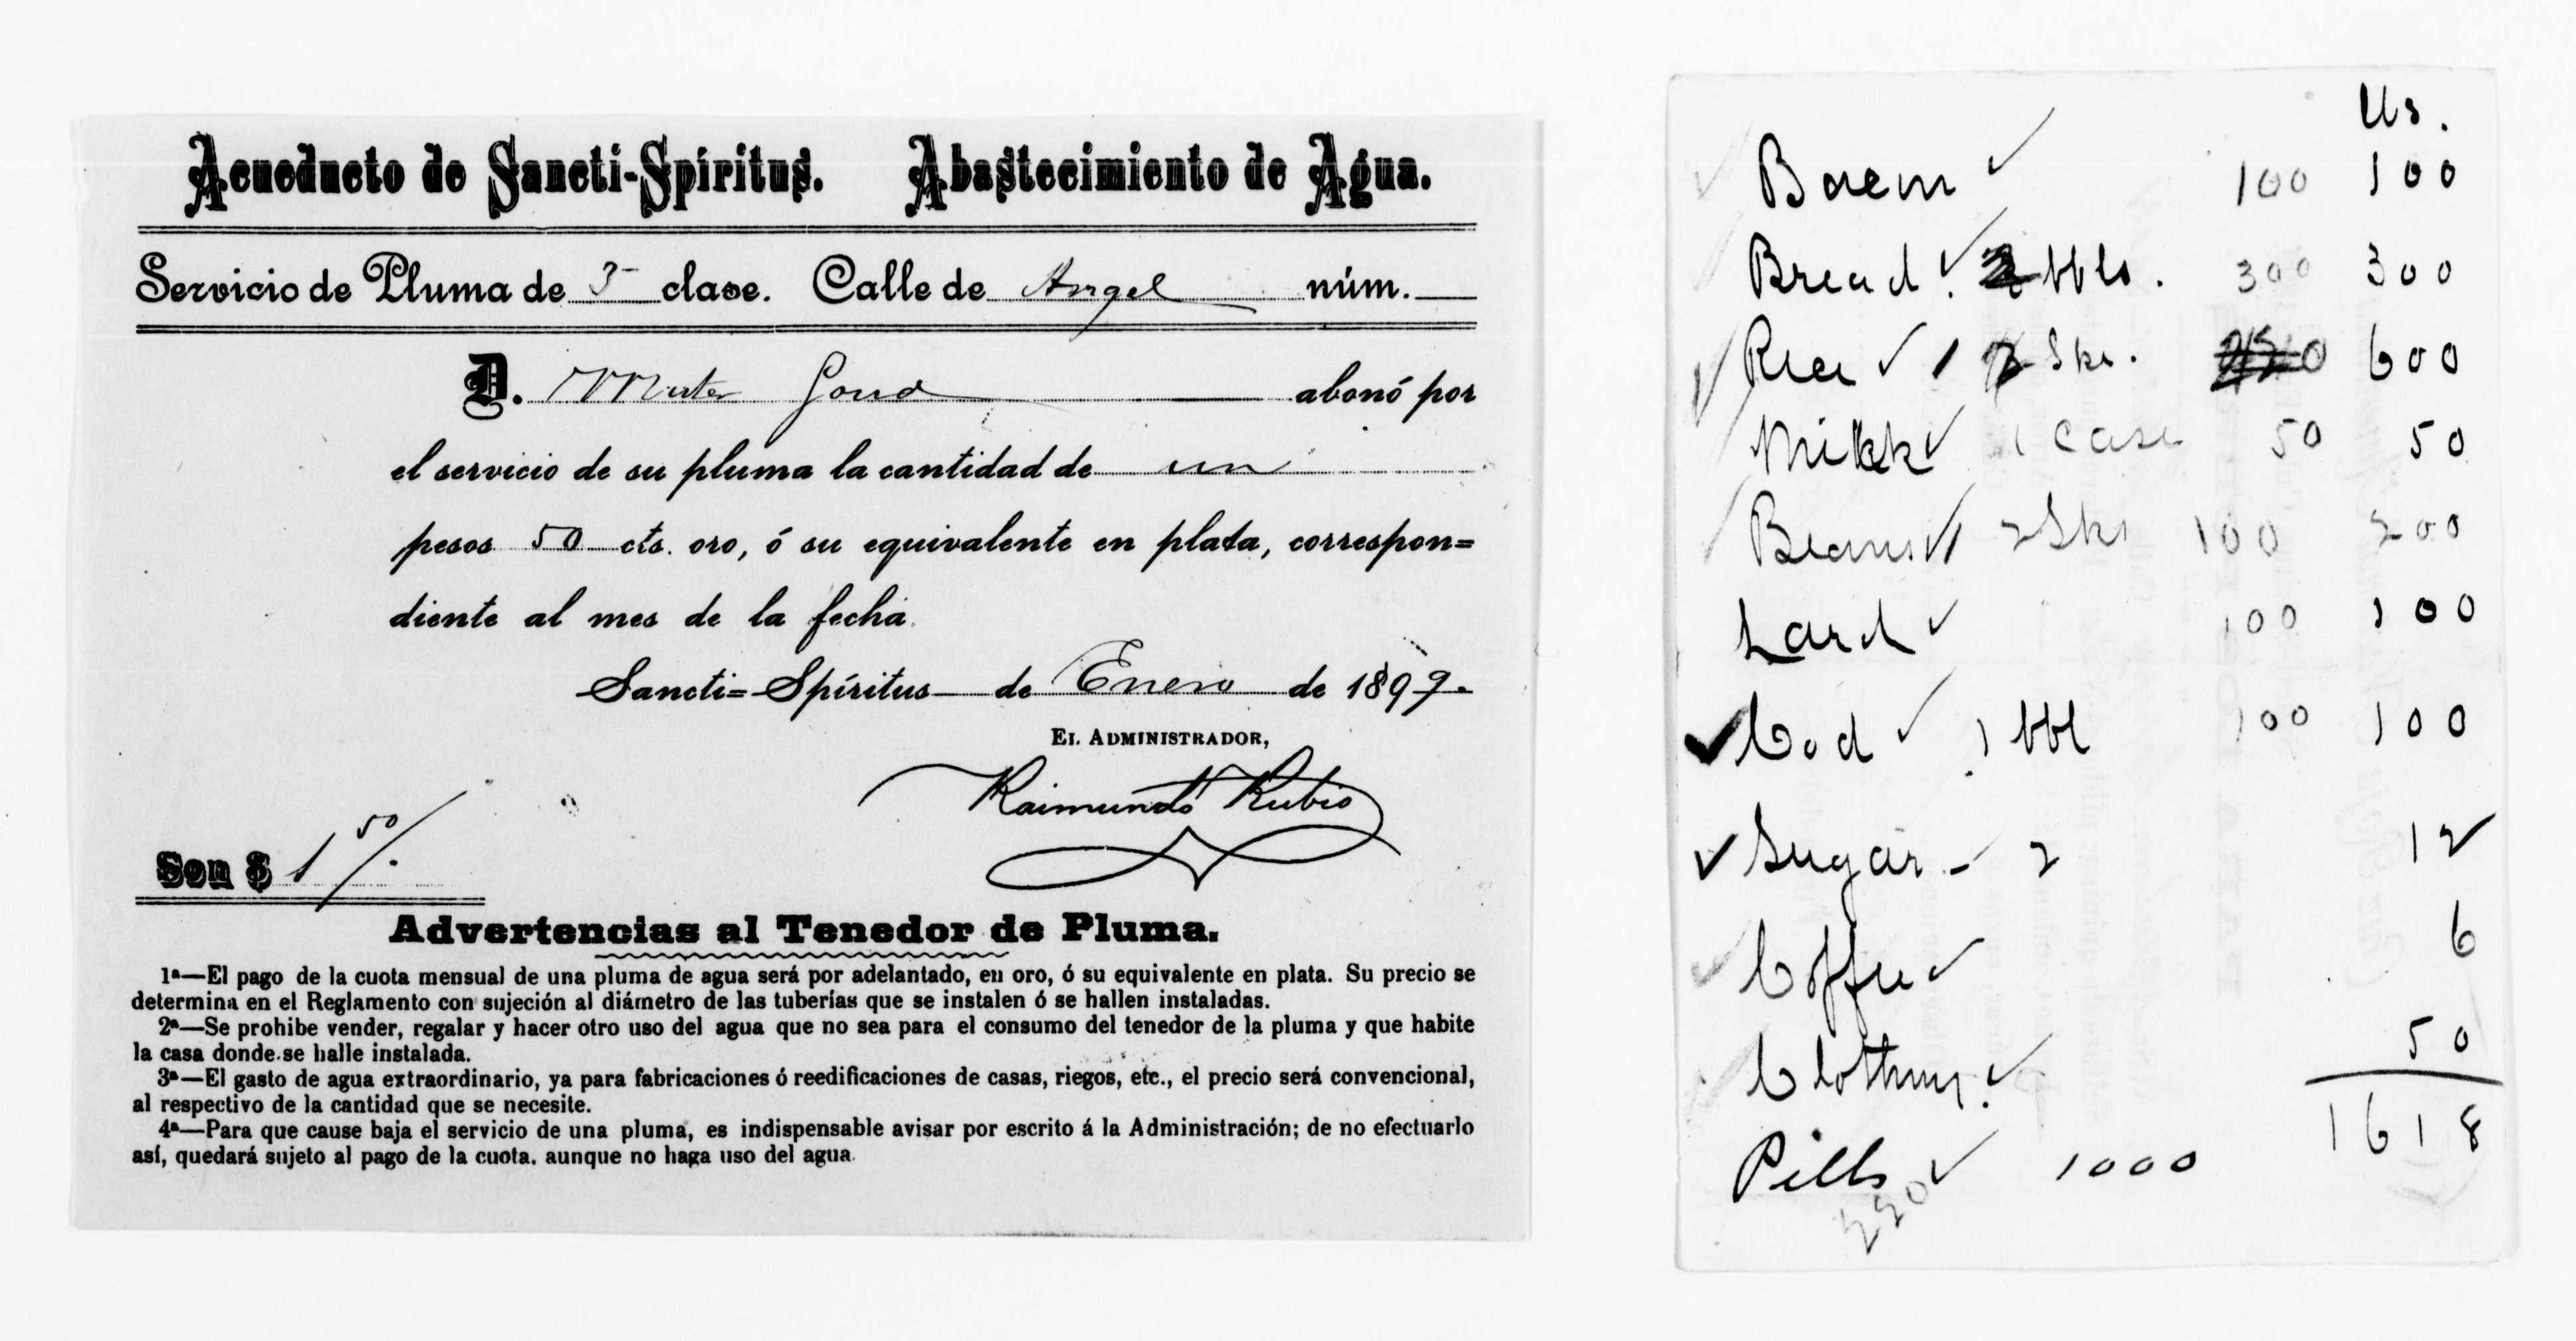 Acueducto de Sancti-Spíritus. Abastecimiento de Agua.
Servicio de Pluma de 3ª clase. Calle de Angel núm.
D. Mister Goud abonó por
el servicio de su pluma la cantidad de un
pesos 50 cts. oro, ó su equivalente en plata, correspon=
diente al mes de la fecha.
Sancti=Spíritus de Enero de 1899.
EL ADMINISTRADOR,
Raimundo Rubio
Son $ 1 50/.
Advertencias al Tenedor de Pluma.
1ª—El pago de la cuota mensual de una pluma de agua será por adelantado, en oro, ó su equivalente en plata. Su precio se
determina en el Reglamento con sujeción al diámetro de las tuberías que se instalen ó se hallen instaladas.
2ª—Se prohibe vender, regalar y hacer otro uso del agua que no sea para el consumo del tenedor de la pluma y que habite
la casa donde se halle instalada.
3ª—El gasto de agua extraordinario, ya para fabricaciones ó reedificaciones de casas, riegos, etc., el precio será convencional,
al respectivo de la cantidad que se necesite.
4ª—Para que cause baja el servicio de una pluma, es indispensable avisar por escrito á la Administración; de no efectuarlo
así, quedará sujeto al pago de la cuota, aunque no haga uso del agua.
lbs.
Bacon ✓ 100 100
Bread ✓ bbls. 300 300
Rice ✓ 1 Sks. 600
Milk ✓ 1 Case 50 50
Beans ✓ 2 Sks 100 200
Lard ✓ 100 100
✓ Cod ✓ 1 bbl 100 100
✓ Sugar - 2 12
Coffee ✓ 6
Clothing ✓ 50
1618
Pills ✓ 1000